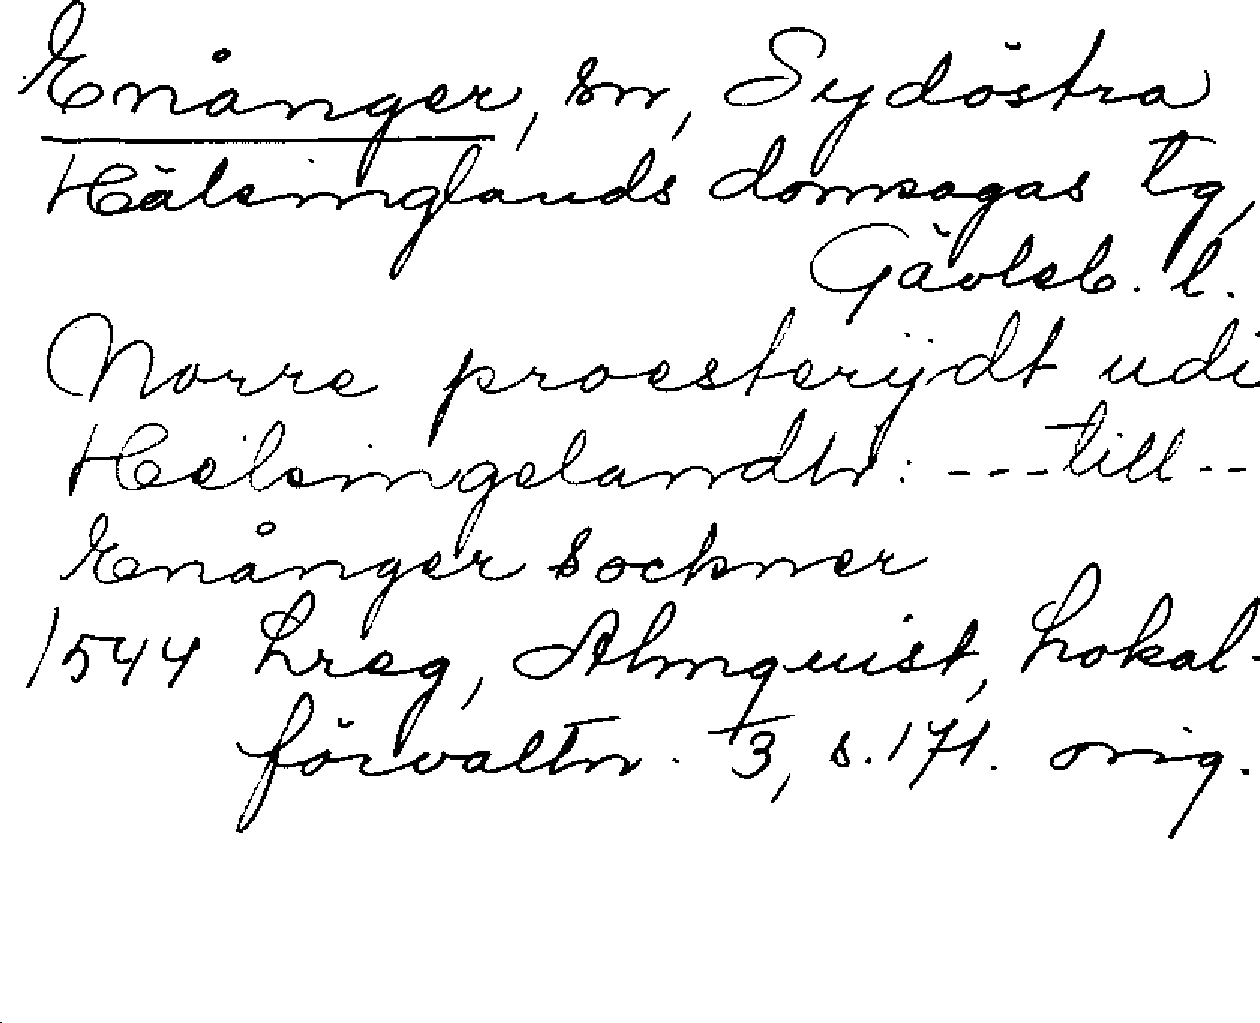 Enånger, sn, Sydöstra
Hälsinglands domsagas tg,
Gävleb. l.
Norre proesterijdt udi
Helsingelandtn: ---till--
Enånger sockner
1544 Lreg, Almquist, Lokal-
förvaltn. 3, s. 171. orig.